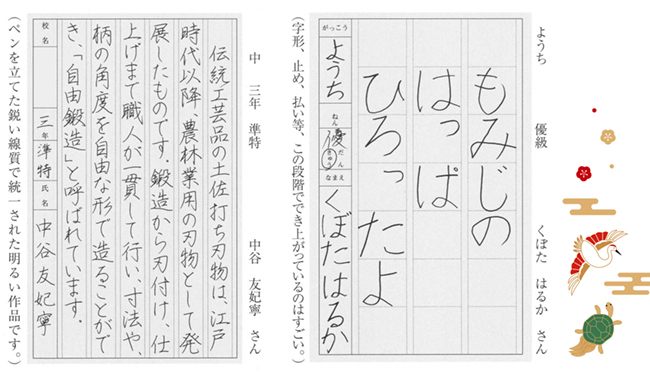 ようち　優級　くぼた　はるか　さん
もみじの
はっぱ
ひろったよ
がっこう
ようち
ねん
優
だん
きゅう
なまえ
くぼたはるか
(字形、止め、払い等、この段階でき上がっているのはすごい。)
中　三年　準特　中谷　友妃寧　さん
伝統工芸品の土佐打ち刃物は、江戸
時代以降、農林業用の刃物として発
展したものです。鍛造から刃付け、仕
上げまで職人が一貫して行い、寸法や、
柄の角度を自由な形で造ることがで
き、「自由鍛造」と呼ばれています。
校名
三年
準特
氏名
中谷友妃寧
(ペンを立てた鋭い線質で統一された明るい作品です。)